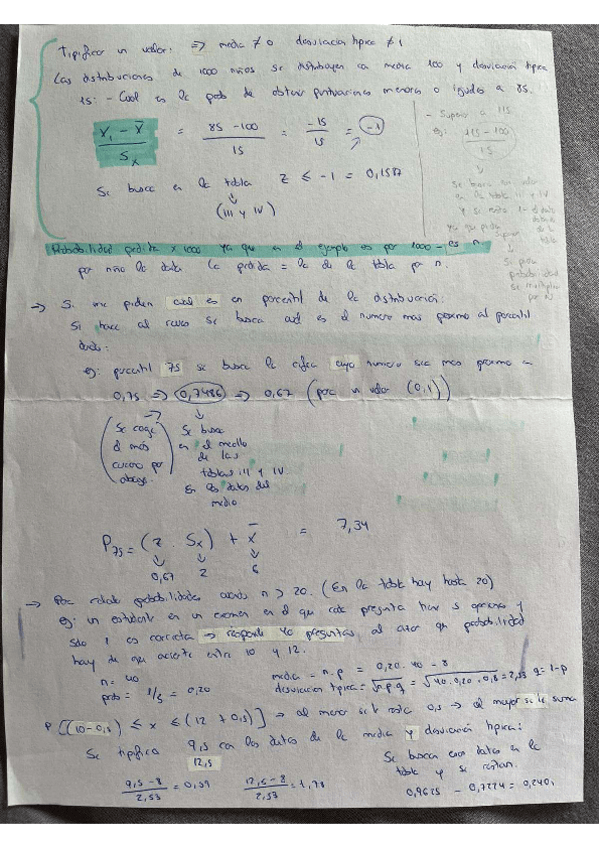 Tipificar un valor: => media ≠ 0 desviación típica ≠ 1
Las distribuciones de 1000 niños se distribuyen con media 100 y desviación típica
15: - Cual es la prob de obtener puntuaciones menores o iguales a 85.
Xi - X̄ / Sx = 85 - 100 / 15 = -15 / 15 = -1
Se busca en la tabla z ≤ -1 = 0,1587
(III y IV)
- Superior a 115
ej: 115 - 100 / 15
Se busca un valor
en la tabla III y IV
Probabilidad pedida x 1000 ya que en el ejemplo es por 1000 - es n.
por niño la daba la pedida = la de la tabla por n.
-> Si me piden cual es un porcentil de la distribución:
Si hace al revés se busca cual es el numero mas proximo al porcentil
dado:
ej: porcentil 75 se busca la cifra cuyo numero sea mas proximo a
0,75 => 0,7486 => 0,67 (para un valor (0,1))
(Se coge el más cercano por abajo)
Se busca
en el medio
de las
tablas III y IV
En los datos del
medio
P75 = (z . Sx) + X̄ = 7,34
0,67 2 6
-> Para calcular probabilidades cuando n > 20. (En la tabla hay hasta 20)
ej: un estudiante en un examen en el que cada pregunta tiene 5 opciones y
solo 1 es correcta -> responde 40 preguntas, al azar que probabilidad
hay de que acierte entre 10 y 12.
n = 40
prob = 1/5 = 0,20
media = n.p = 0,20 . 40 = 8
desviacion tipica = √n.p.q = √40.0,20.0,8 = 2,53 q = 1-p
P [(10 - 0,5) ≤ x ≤ (12 + 0,5)] -> al menor se le resta 0,5 -> al mayor se le suma
Se tipifica 9,5 con los datos de la media y desviación tipica:
12,5
9,5 - 8 / 2,53 = 0,59
12,5 - 8 / 2,53 = 1,78
Se busca esos datos en la
tabla y se restan.
0,9625 - 0,7224 = 0,2401